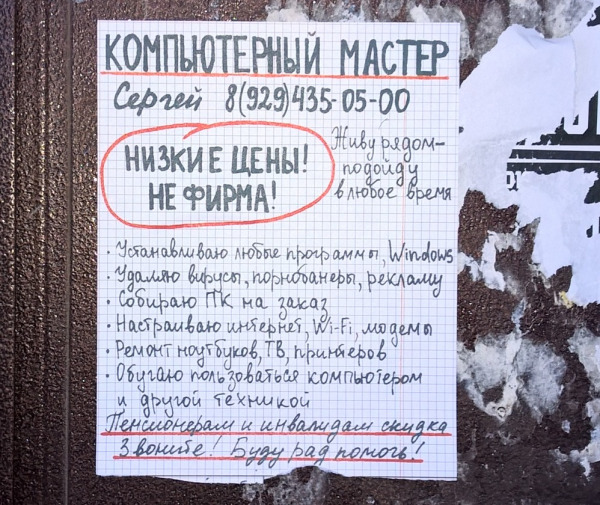 КОМПЬЮТЕРНЫЙ МАСТЕР
Сергей 8(929)435-05-00
НИЗКИЕ ЦЕНЫ!
НЕ ФИРМА!
Живу рядом-
подойду
в любое время
· Устанавливаю любые программы, Windows
· Удаляю вирусы, порнобанеры, рекламу
· Собираю ПК на заказ
· Настраиваю интернет, Wi-Fi, модемы
· Ремонт ноутбуков, ТВ, принтеров
· Обучаю пользоваться компьютером
и другой техникой
Пенсионерам и инвалидам скидка
Звоните! Буду рад помочь!